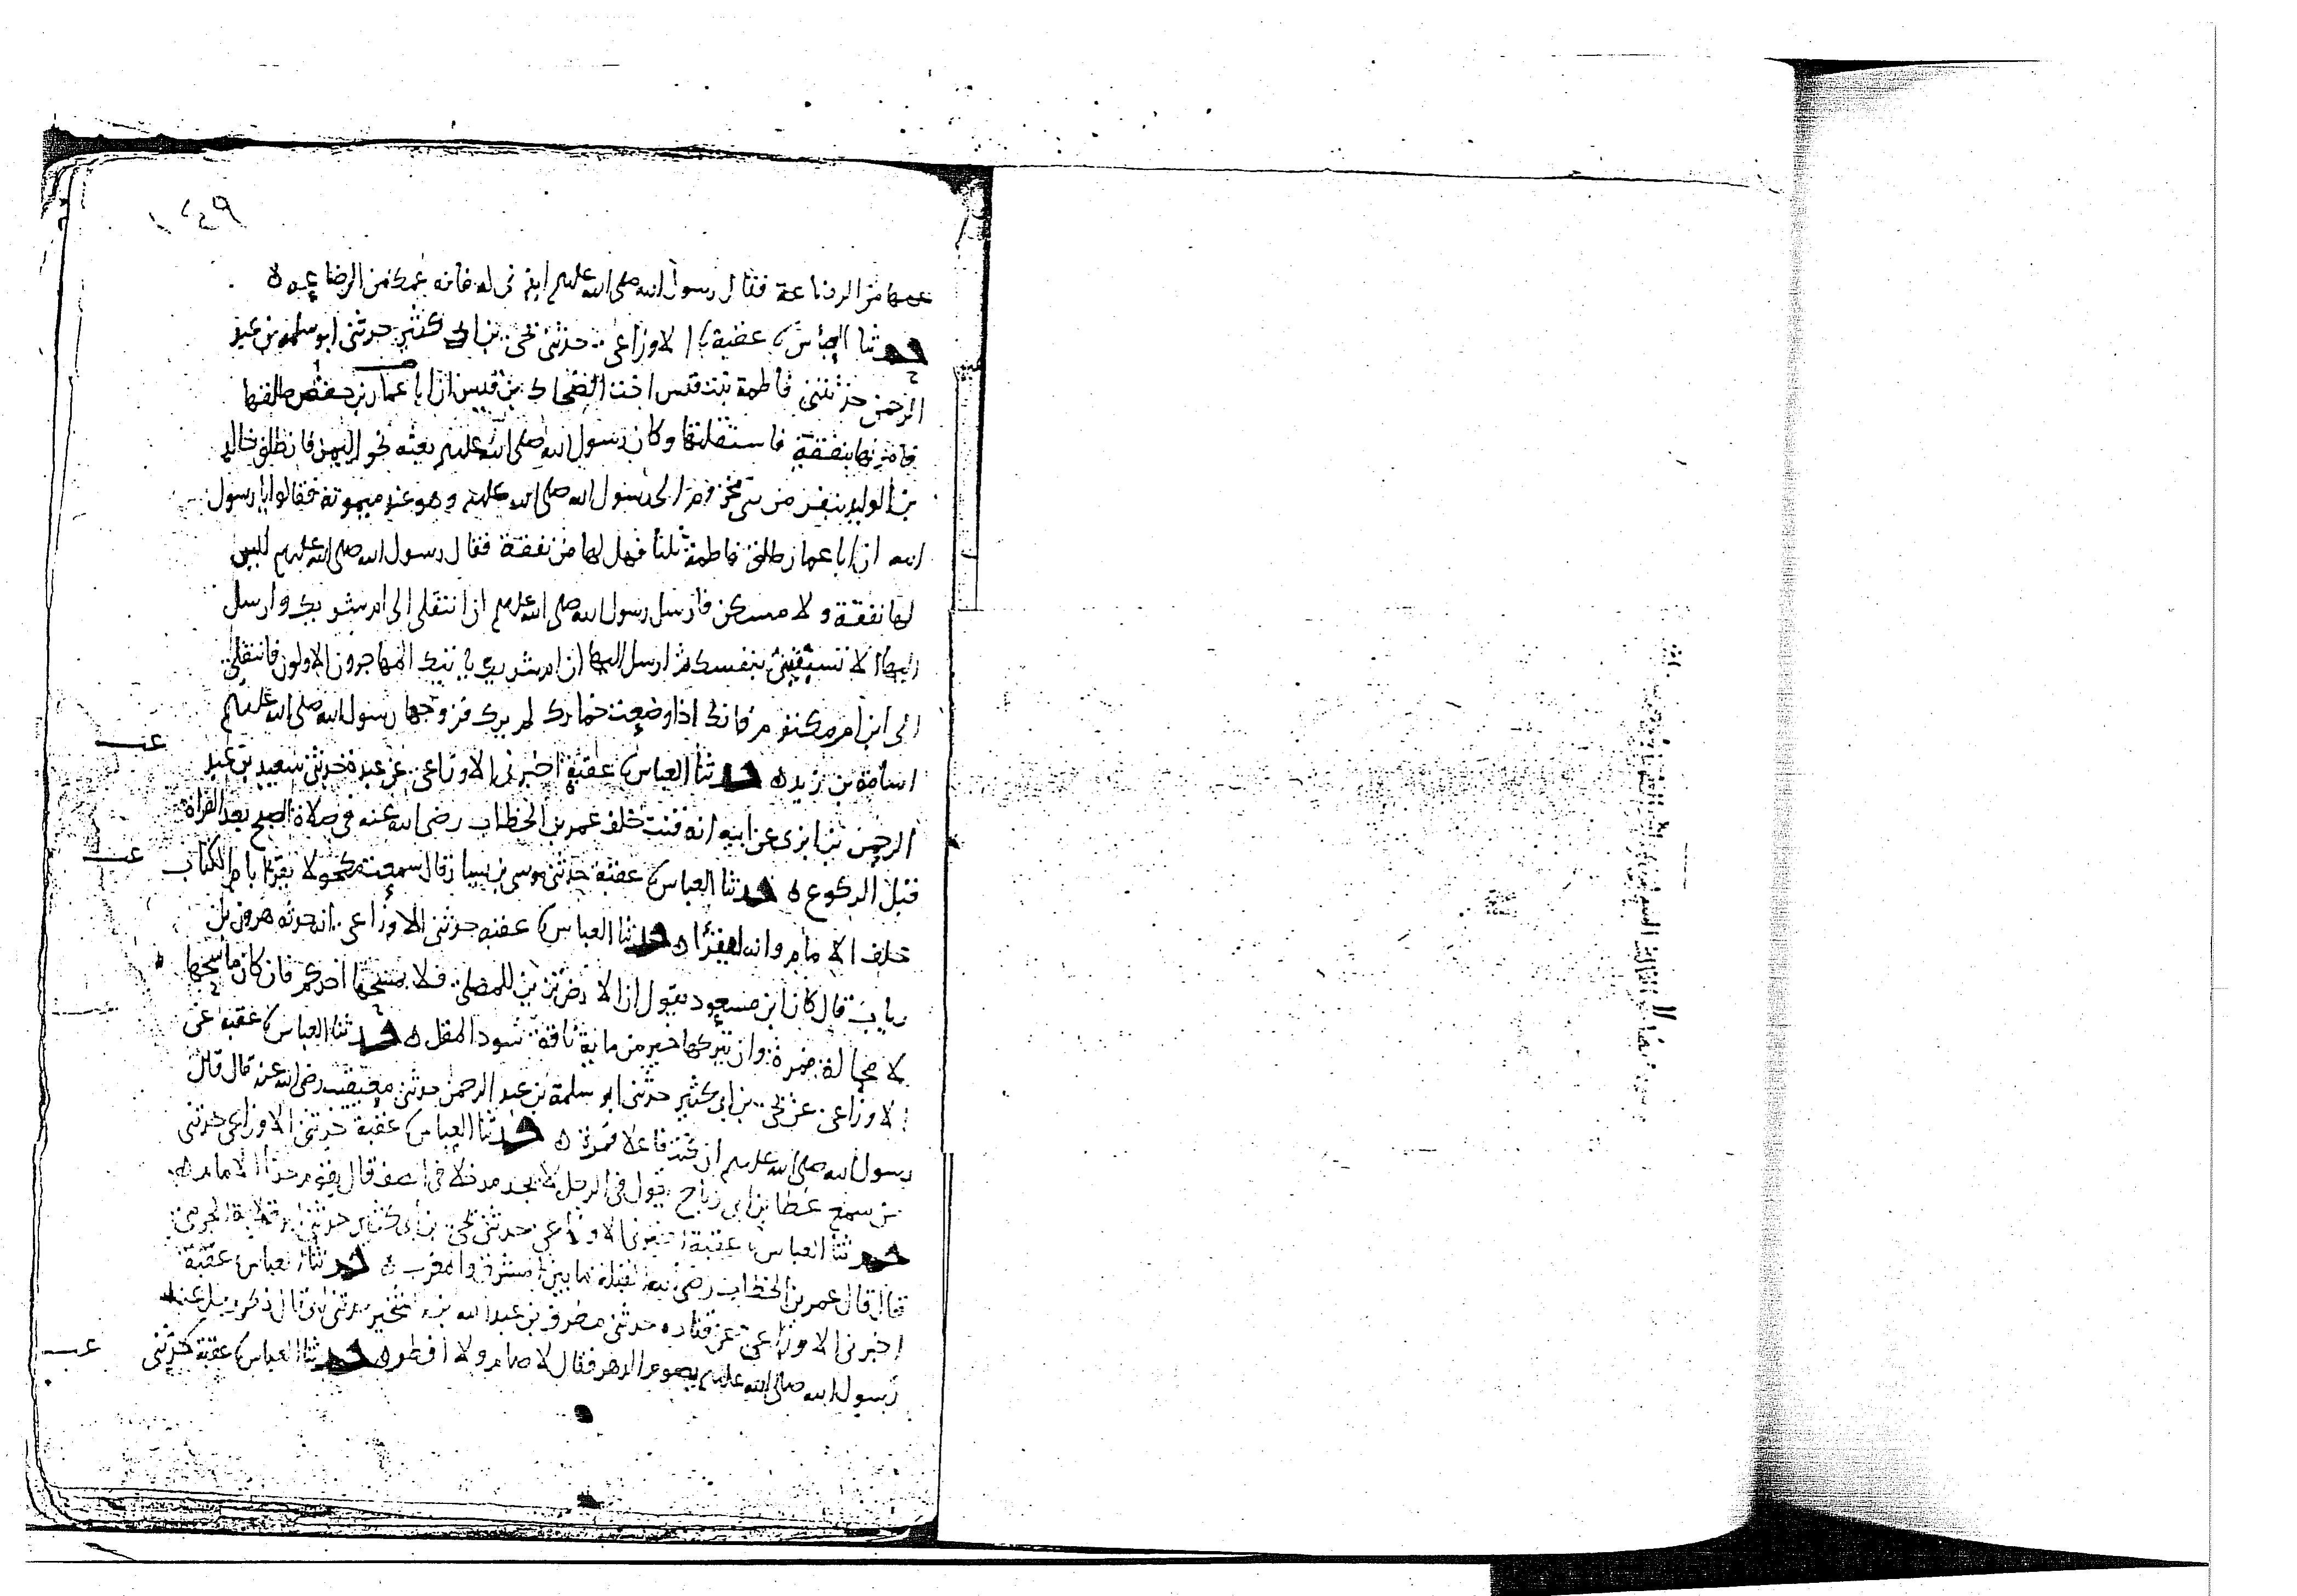 ١٤٩
عمها من الرضاعة فقال رسول الله صلى الله عليه وسلم ايذني له فانه عمك من الرضاعة ه
حدثنا العباس نا عقبة نا الاوزاعي حدثني يحيى بن ابي كثير حدثني ابو سلمة بن عبد
الرحمن حدثتني فاطمة بنت قيس اخت الضحاك بن قيس ان ابا عمار بن حفص طلقها
فامر لها بنفقة فاستقلتها وكان رسول الله صلى الله عليه وسلم بعثه نحو اليمن فانطلق خالد
بن الوليد بنفر من بني مخزوم الى رسول الله صلى الله عليه وسلم وهو عند ميمونة فقالوا يا رسول
الله ان ابا عمار طلق فاطمة ثلثا فهل لها من نفقة فقال رسول الله صلى الله عليه وسلم ليس
لها نفقة ولا مسكن فارسل رسول الله صلى الله عليه وسلم ان انتقلي الى ام شريك وارسل
اليها الا تسبقيني بنفسك ثم ارسل اليها ان ام شريك ياتيك المهاجرون الاولون فانتقلي
الى ابن ام مكتوم فانك اذا وضعت خمارك لم يرك فزوجها رسول الله صلى الله عليه وسلم
اسامة بن زيد ه حدثنا العباس نا عقبة اخبرني الاوزاعي عن عبدة حدثني سعيد بن عبد
الرحمن بن ابزى عن ابيه انه قنت خلف عمر بن الخطاب رضي الله عنه في صلاة الصبح بعد القراة
قبل الركوع ه حدثنا العباس نا عقبة حدثني موسى بن يسار قال سمعت مكحولا يقرا بام الكتاب
خلف الامام وانه ليقرا ه حدثنا العباس نا عقبة حدثني الاوزاعي انه حدثه هرون بن
رياب قال كان ابن مسعود يقول ان الارض تزين للمصلي فلا يمسحها احدكم فان كان ماسحها
لا محالة فمرة وان تتركها خير من ماية ناقة سود المقل ه حدثنا العباس نا عقبة عن
الاوزاعي عن يحيى بن ابي كثير حدثني ابو سلمة بن عبد الرحمن حدثني معيقيب رضي الله عنه قال قال
رسول الله صلى الله عليه وسلم ان كنت فاعلا فمرة ه حدثنا العباس نا عقبة حدثني الاوزاعي حدثني
من سمع عطا بن ابي رباح يقول في الرجل لا يجد مدخلا في الصف قال يقوم حذا الامام ه
حدثنا العباس نا عقبة اخبرني الاوزاعي حدثني يحيى بن ابي كثير حدثني ابو قلابة الجرمي
قال قال عمر بن الخطاب رضي الله القبلة ما بين المشرق والمغرب ه حدثنا العباس نا عقبة
اخبرني الاوزاعي عن قتادة حدثني مطرف بن عبد الله بن الشخير حدثني ابي قال ذكر رجل عند
رسول الله صلى الله عليه وسلم يصوم الدهر فقال لا صام ولا افطر ه حدثنا العباس نا عقبة حدثني